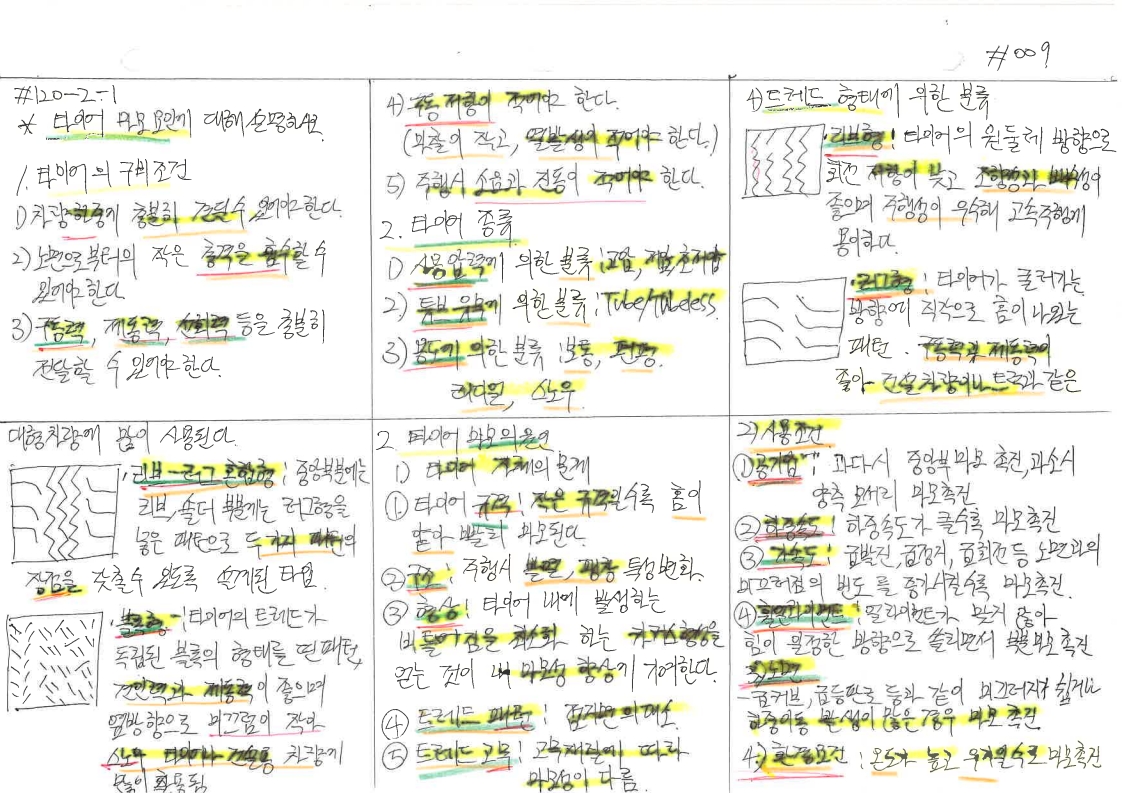 #009
#120-2-1
* 타이어 마모 요인에 대해 설명하시오
1. 타이어의 구비조건
1) 차량하중에 충분히 견딜수 있어야한다.
2) 노면으로부터의 작은 충격을 흡수할 수
있어야 한다
3) 구동력, 제동력, 선회력 등을 충분히
전달할 수 있어야 한다.
4) 구동 저항이 적어야 한다.
(마찰이 작고, 열발생이 적어야 한다.)
5) 주행시 소음과 진동이 적어야 한다.
2. 타이어 종류
1) 사용압력에 의한 분류 ; 고압, 저압, 초저압
2) 튜브 유무에 의한 분류 ; Tube/Tubeless.
3) 용도에 의한 분류 ; 보통, 편평,
레디얼, 스노우
4) 트레드 형태에 의한 분류
· 리브형 ; 타이어의 원둘레 방향으로
회전 저항이 낮고 조향성과 배수성이
좋으며 주행성이 우수해 고속주행에
용이하다.
· 러그형 ; 타이어가 굴러가는
방향에 직각으로 홈이 나있는
패턴. 구동력 및 제동력이
좋아 건설차량이나 트럭과 같은
대형차량에 많이 사용된다.
· 리브-러그 혼합형 ; 중앙부분에는
리브, 숄더 부분에는 러그형을
넣은 패턴으로 두가지 패턴의
장점을 갖출수 있도록 설계된 타입
· 블록형 ; 타이어의 트레드가
독립된 블록의 형태를 띤 패턴,
견인력과 제동력이 좋으며
옆방향으로 미끄럼이 작아
스노우 타이어나 건설용 차량에
많이 적용됨
2. 타이어 마모의 요인
1) 타이어 자체의 문제
① 타이어 규격 ; 작은 규격일수록 홈이
얕아 빨리 마모된다.
② 구조 ; 주행시 변화.
③ 형상 ; 타이어 내에 발생하는
비틀어짐을 최소화 하는 카카스형상을
얻는 것이 내 마모성 향상에 기여한다.
④ 트레드 패턴 ; 접지면의 대소
⑤ 트레드 고무 ; 고무재질에 따라
마모성이 다름.
2) 사용조건
① 공기압 ; 과다시 중앙부 마모 촉진, 과소시
양측 모서리 마모촉진
② 하중속도 ; 하중속도가 클수록 마모촉진
③ 가속도 ; 급발진, 급정지, 급회전 등 노면과의
미끄러짐의 빈도를 증가시킬수록 마모촉진.
④ 휠얼라이먼트 ; 얼라이먼트가 맞지 않아
힘이 일정한 방향으로 쏠리면서 마모 촉진
노면
-급커브, 급등판로 등과 같이 미끄러지기 쉽거나
하중이동 발생이 많은 경우 마모 촉진
4) 환경요건 ; 온도가 높고 마모촉진